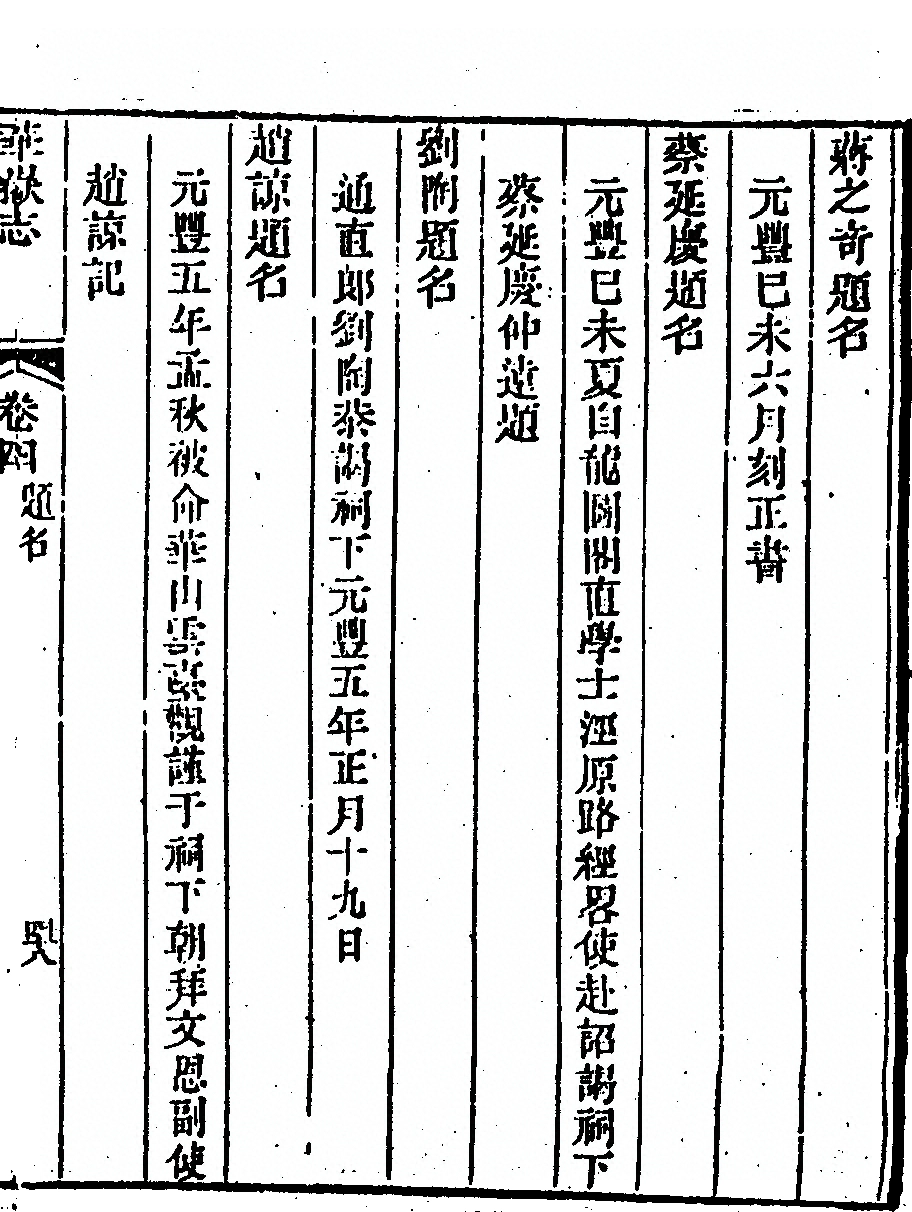 蔣之奇題名
元豐巳未六月刻正書
蔡延慶題名
元豐巳未夏自龍圖閣直學士涇原路經畧使赴詔謁祠下
蔡延慶仲遠題
劉陶題名
通直郎劉陶恭謁祠下元豐五年正月十九日
趙諒題名
元豐五年孟秋被命華山雲臺觀謹于祠下朝拜文思副使
趙諒記
華嶽志
卷四
題名